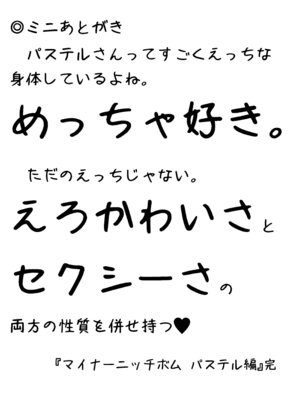 ◎ミニあとがき
　パステルさんってすごくえっちな
身体しているよね。
めっちゃ好き。
　ただのえっちじゃない。
えろかわいさと
セクシーさの
両方の性質を併せ持つ♥
『マイナーニッチホム パステル編』完